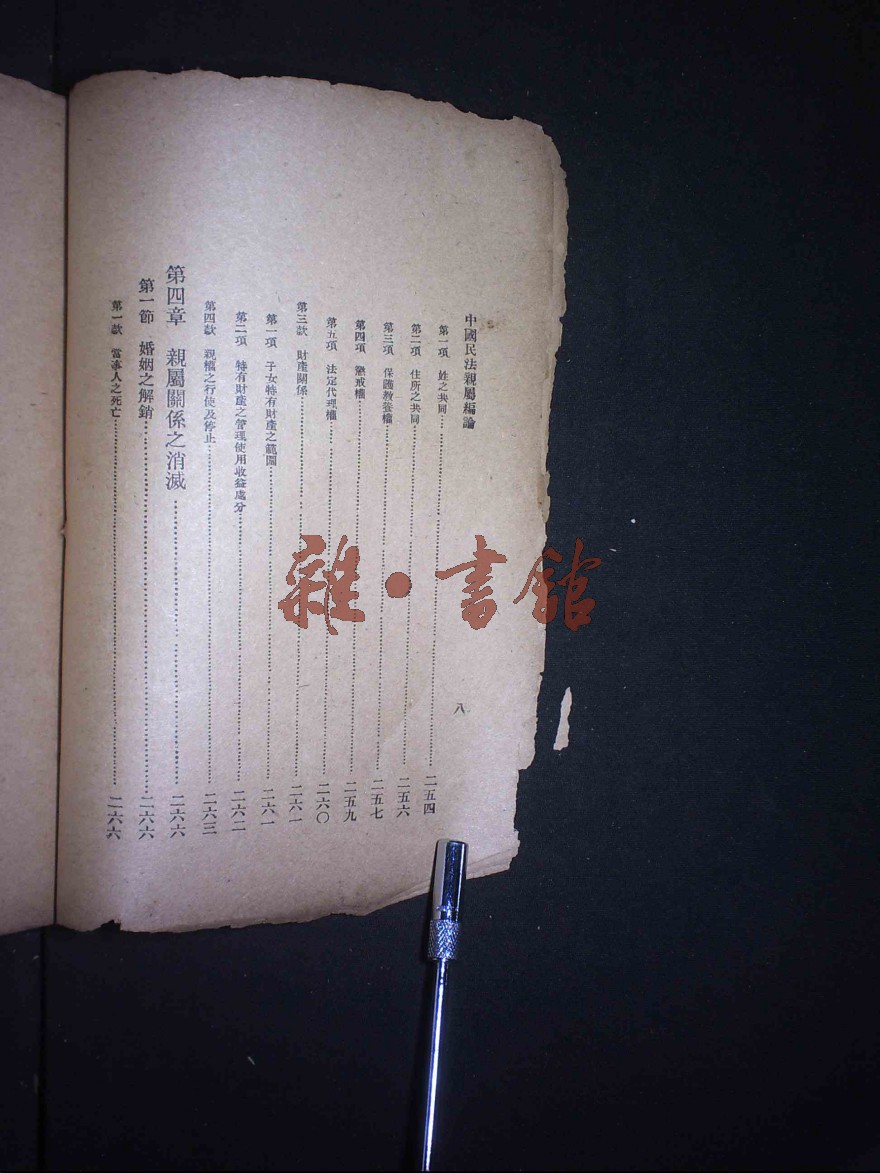 中國民法親屬編論
八
第一項　姓之共同……二五四
第二項　住所之共同……二五六
第三項　保護教養權……二五七
第四項　懲戒權……二五九
第五項　法定代理權……二六〇
第三款　財產關係……二六一
第一項　子女特有財產之範圍……二六一
第二項　特有財產之管理使用收益處分……二六二
第四款　親權之行使及停止……二六三
第四章　親屬關係之消滅……二六六
第一節　婚姻之解銷……二六六
第一款　當事人之死亡……二六六
雜·書館